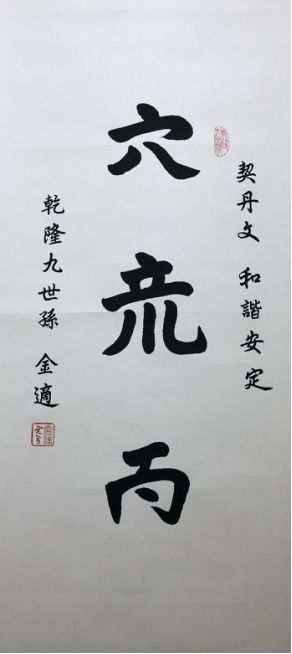 契丹文 和諧安定
穴
丙
乾隆九世孫 金適